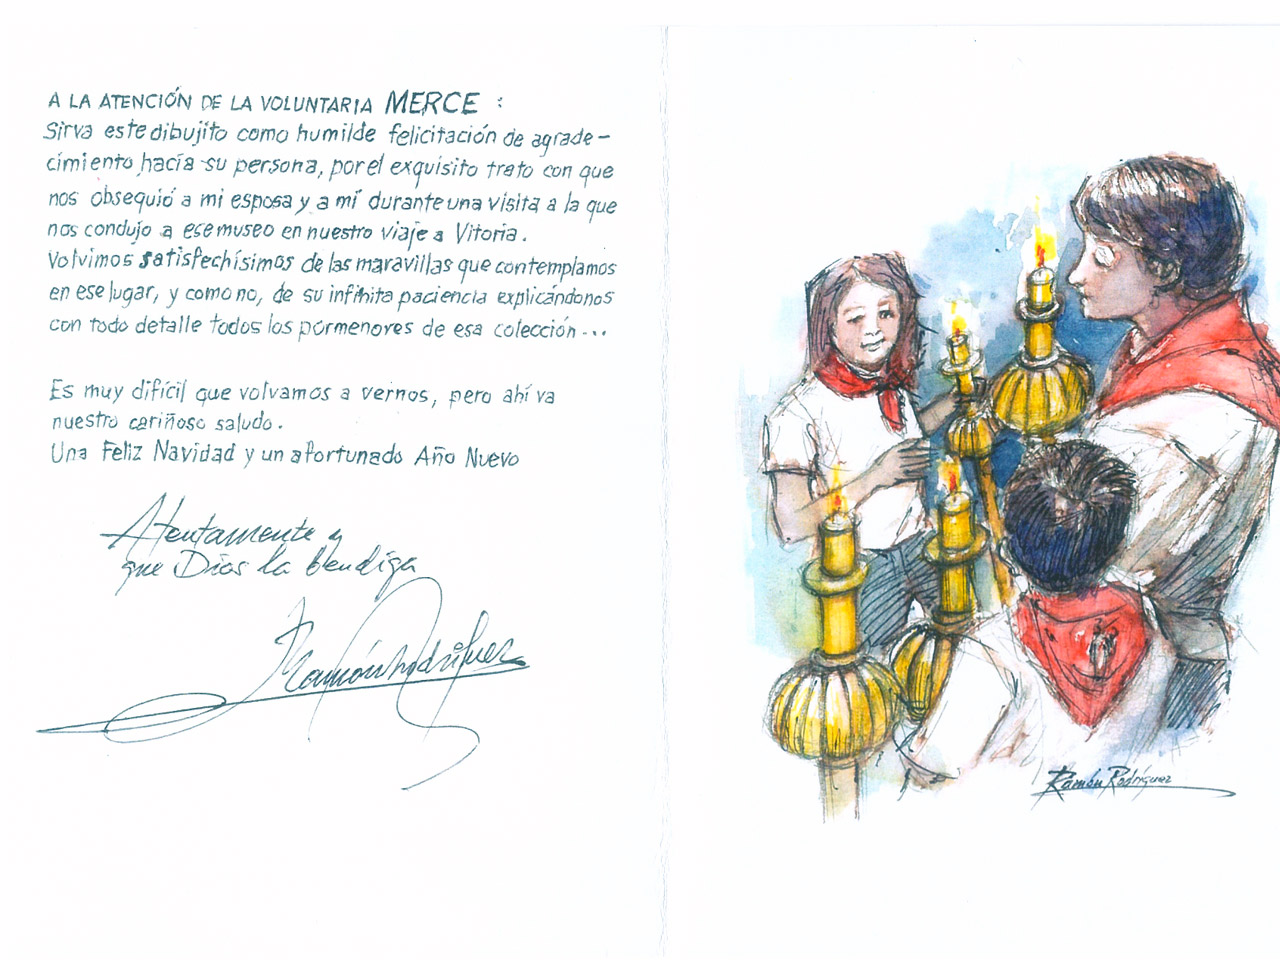 A LA ATENCIÓN DE LA VOLUNTARIA MERCE :
Sirva este dibujito como humilde felicitación de agrade-
cimiento hacía su persona, por el exquisito trato con que
nos obsequió a mi esposa y a mí durante una visita a la que
nos condujo a ese museo en nuestro viaje a Vitoria.
Volvimos satisfechísimos de las maravillas que contemplamos
en ese lugar, y como no, de su infinita paciencia explicándonos
con todo detalle todos los pormenores de esa colección...
Es muy difícil que volvamos a vernos, pero ahí va
nuestro cariñoso saludo.
Una Feliz Navidad y un afortunado Año Nuevo
Atentamente y
que Dios la bendiga
Ramón Rodríguez
Ramón Rodríguez